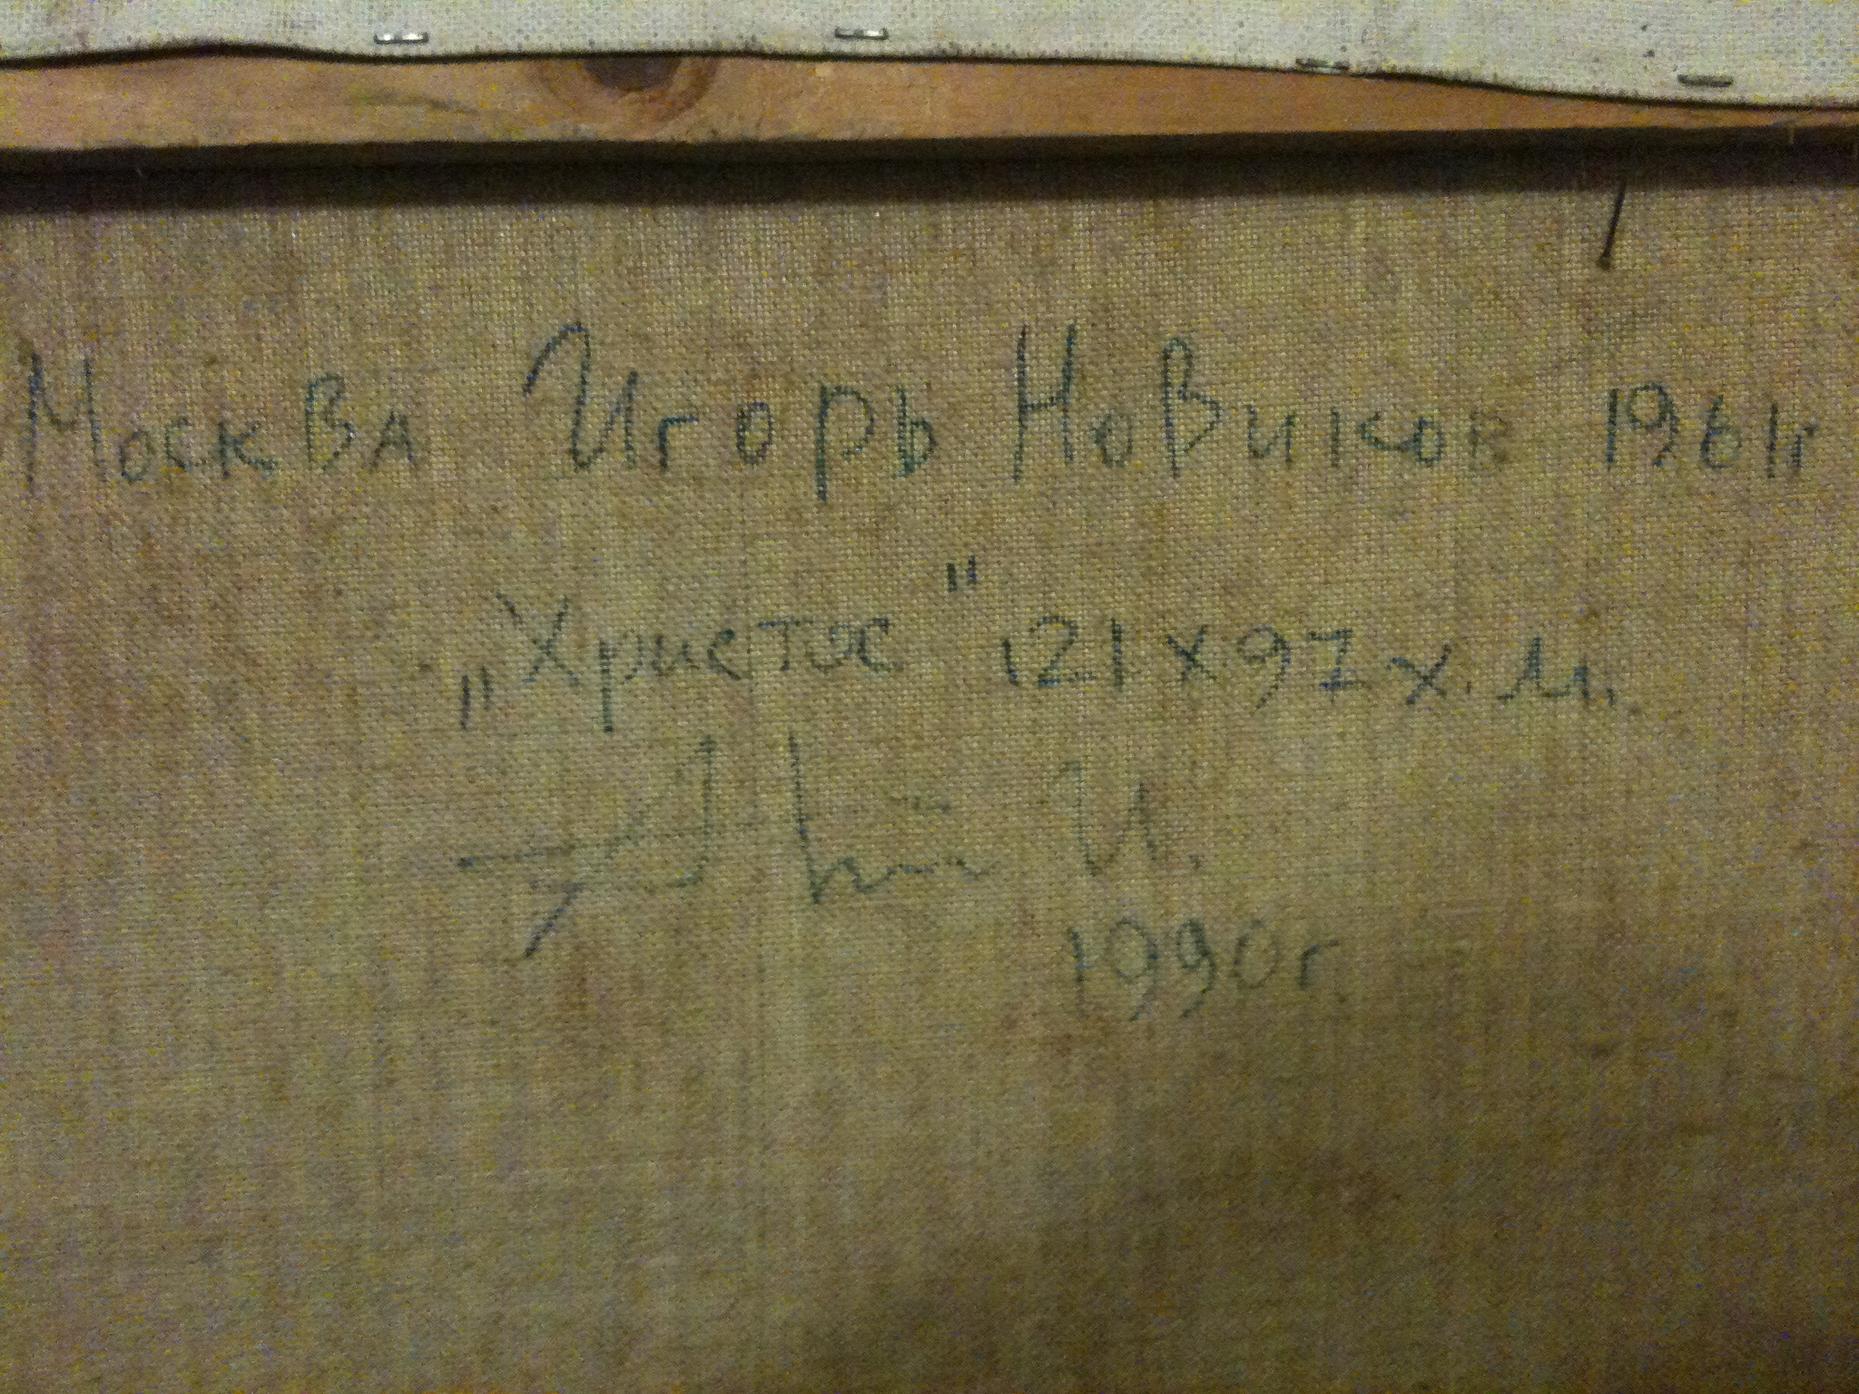 Москва Игорь Новиков 1961г
„Христос" 121х97 х. м.
И.
1990г.